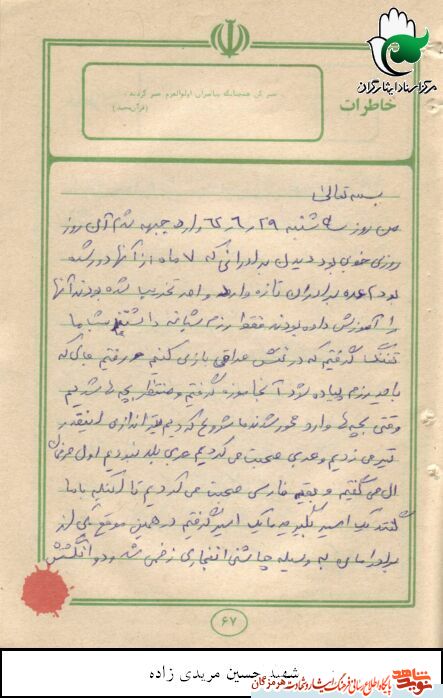 مرکز اسناد ایثارگران
خاطرات
صبر کن همچنانکه پیامبران اولوالعزم صبر کردند
(قرآن مجید)
بسمه تعالی
من روز سه شنبه ۲۹ر۶ر۶۲ وارد جبهه شدم آن روز
روزی خوبی بود دیدن برادرانی که ۷ ماه از آنها دور شده
بودم عده برادران تازه وارد واحد تخریب شده بودند آنها
را آموزش داده بودند فقط رزم شبانه داشتند شب ما
تفنگ گرفتیم که در نقش عراقی بازی کنیم و رفتیم جای که
باید رزم پیاده شود آنجا موزه گرفتیم و منتظر بچه ها شدیم
وقتی بچه ها وارد محور شدند ما شروع کردیم تیراندازی اینقدر
تیر می زدیم و عربی صحبت می کردیم عربی بلد نبودیم اول حرفی
ال می گفتیم و بقیه فارسی صحبت می کردیم تا اینکه با ما
گفتند یک اسیر بگیرید ما یک اسیر گرفتیم در همین موقع یکی از
برادرامان به وسیله چاشنی انفجاری زخمی شد و دو انگشتش
۶۷
شهید حسین مریدی زاده
نوید شاهد
پایگاه اطلاع رسانی فرهنگ ایثار و شهادت هرمزگان